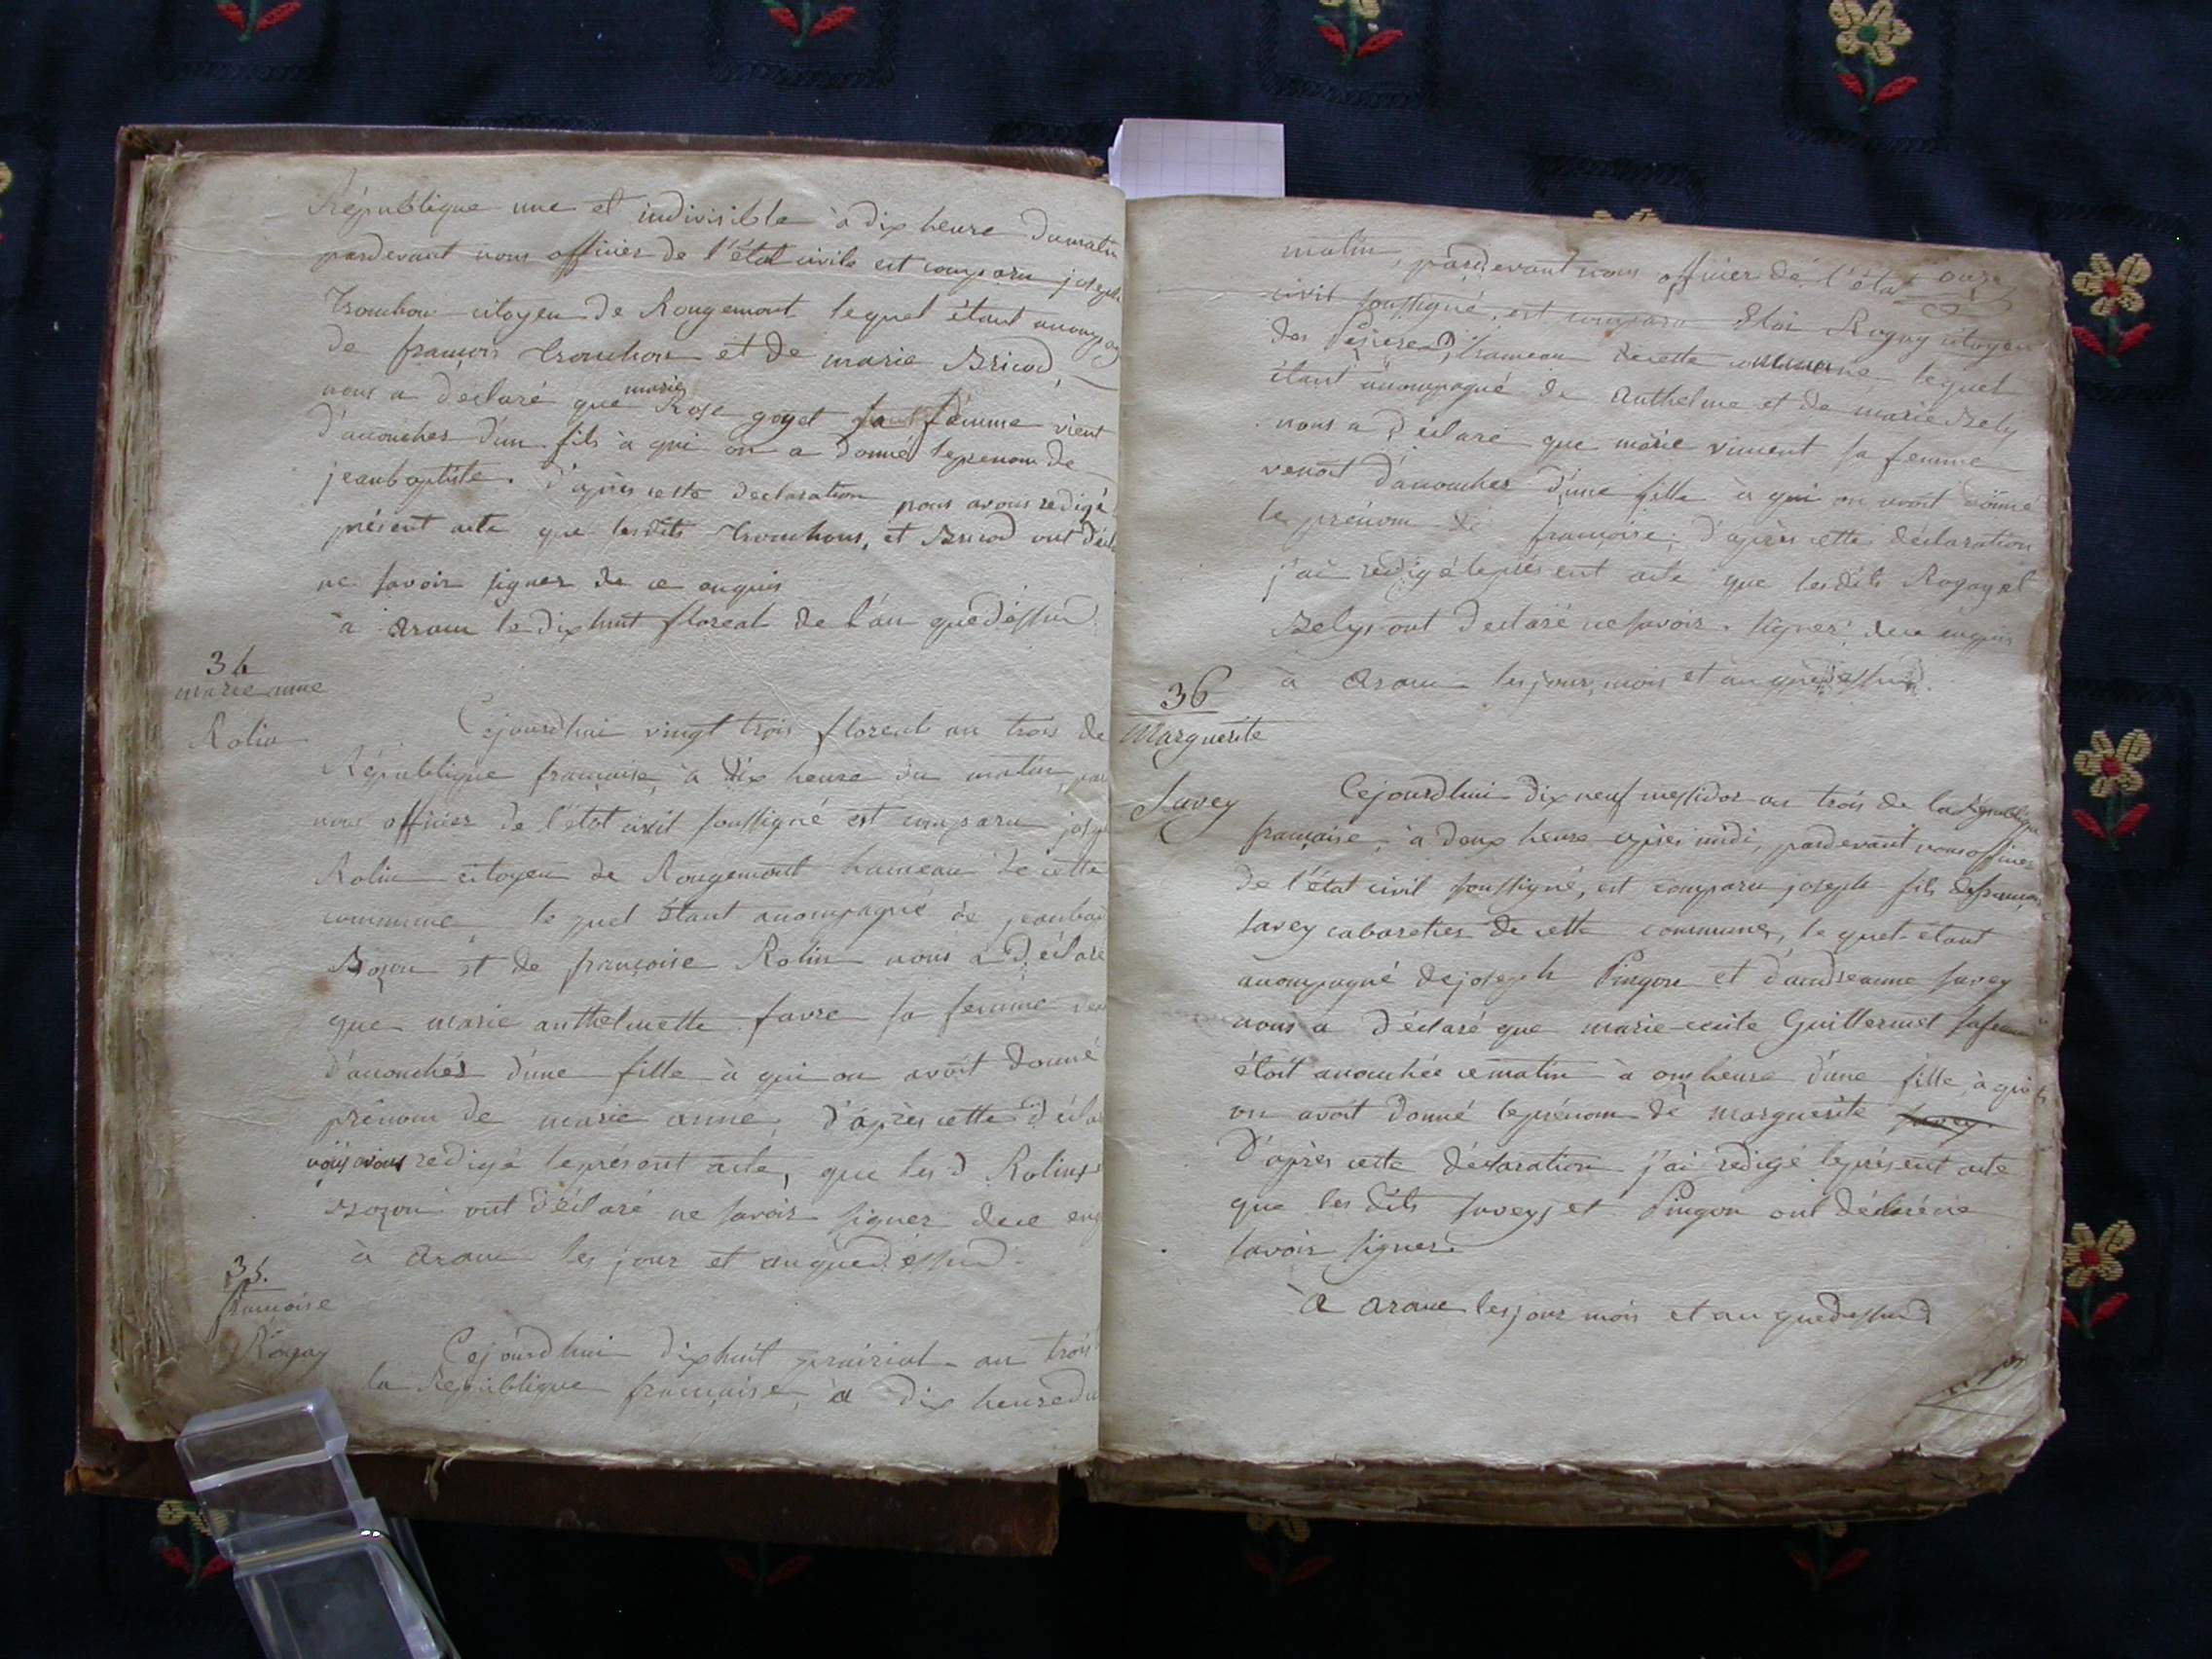 République une et indivisible à dix heure du matin
pardevant nous officier de l'état civile est comparu joseph
trouchon citoyen de Rougemont lequel étant
de françois trouchon et de marie Bricod
nous a déclaré que marie Rose goyet sa femme vient
d'accoucher d'un fils à qui on a donné le prenom de
jeanbaptiste. d'après cette declaration nous avons redigé
présent acte que lesdits trouchons, et Bricod ont
ne savoir signer de ce enquis
à aranc le dix huit floreal de l'an que dessus
34
marie anne
Rolin
Cejourdhui vingt trois floreal an trois de
République française, à dix heure du matin
nous officier de l'état civil soussigné est comparu
Rolin citoyen de Rougemont hameau de cette
commune, le quel étant accompagné de
Bozon et de françoise Rolin nous a déclaré
que marie anthelmette favre sa femme
d'accoucher d'une fille à qui on avoit donné
prénom de marie anne, d'après cette
nous avons redigé le présent acte, que les d Rolins
Bozon ont déclaré ne savoir signer de ce
à aranc les jour et an que dessus.
35.
françoise
Rogay
Cejourdhui dixhuit prairial an trois
la République française, à dix heure du
matin, pardevant nous officier de l'état onze
civil soussigné, est comparu Eloi Rogay citoyen
des hameau de cette commune, lequel
étant accompagné de anthelme et de marie Bely
nous a déclaré que marie vincent sa femme
venoit d'accoucher d'une fille à qui on avoit donné
le prénom de françoise; d'après cette déclaration
j'ai redigé le présent acte que lesdits Rogay et
Belys ont declaré ne savoir signer de ce enquis
à aranc les jour, mois et an que dessus.
36
Marguerite
Savey
Cejourdhui dix neuf messidor an trois de la République
française, à deux heure après midi, pardevant nous officier
de l'état civil soussigné, est comparu joseph fils de françois
savey cabaretier de cette commune, le quel étant
accompagné de joseph Pingon et d'andréanne savey
nous a déclaré que marie Guillermet sa femme
étoit accouchée ce matin à onze heure d'une fille, à qui
on avoit donné le prénom de marguerite savey.
D'après cette déclaration j'ai redigé le présent acte
que les dits saveys et Pingon ont déclaré ne
savoir signer.
à aranc les jour mois et an que dessus